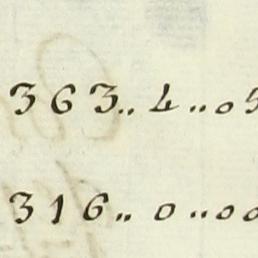 363.. 4 .. 05
316.. 0 .. 00